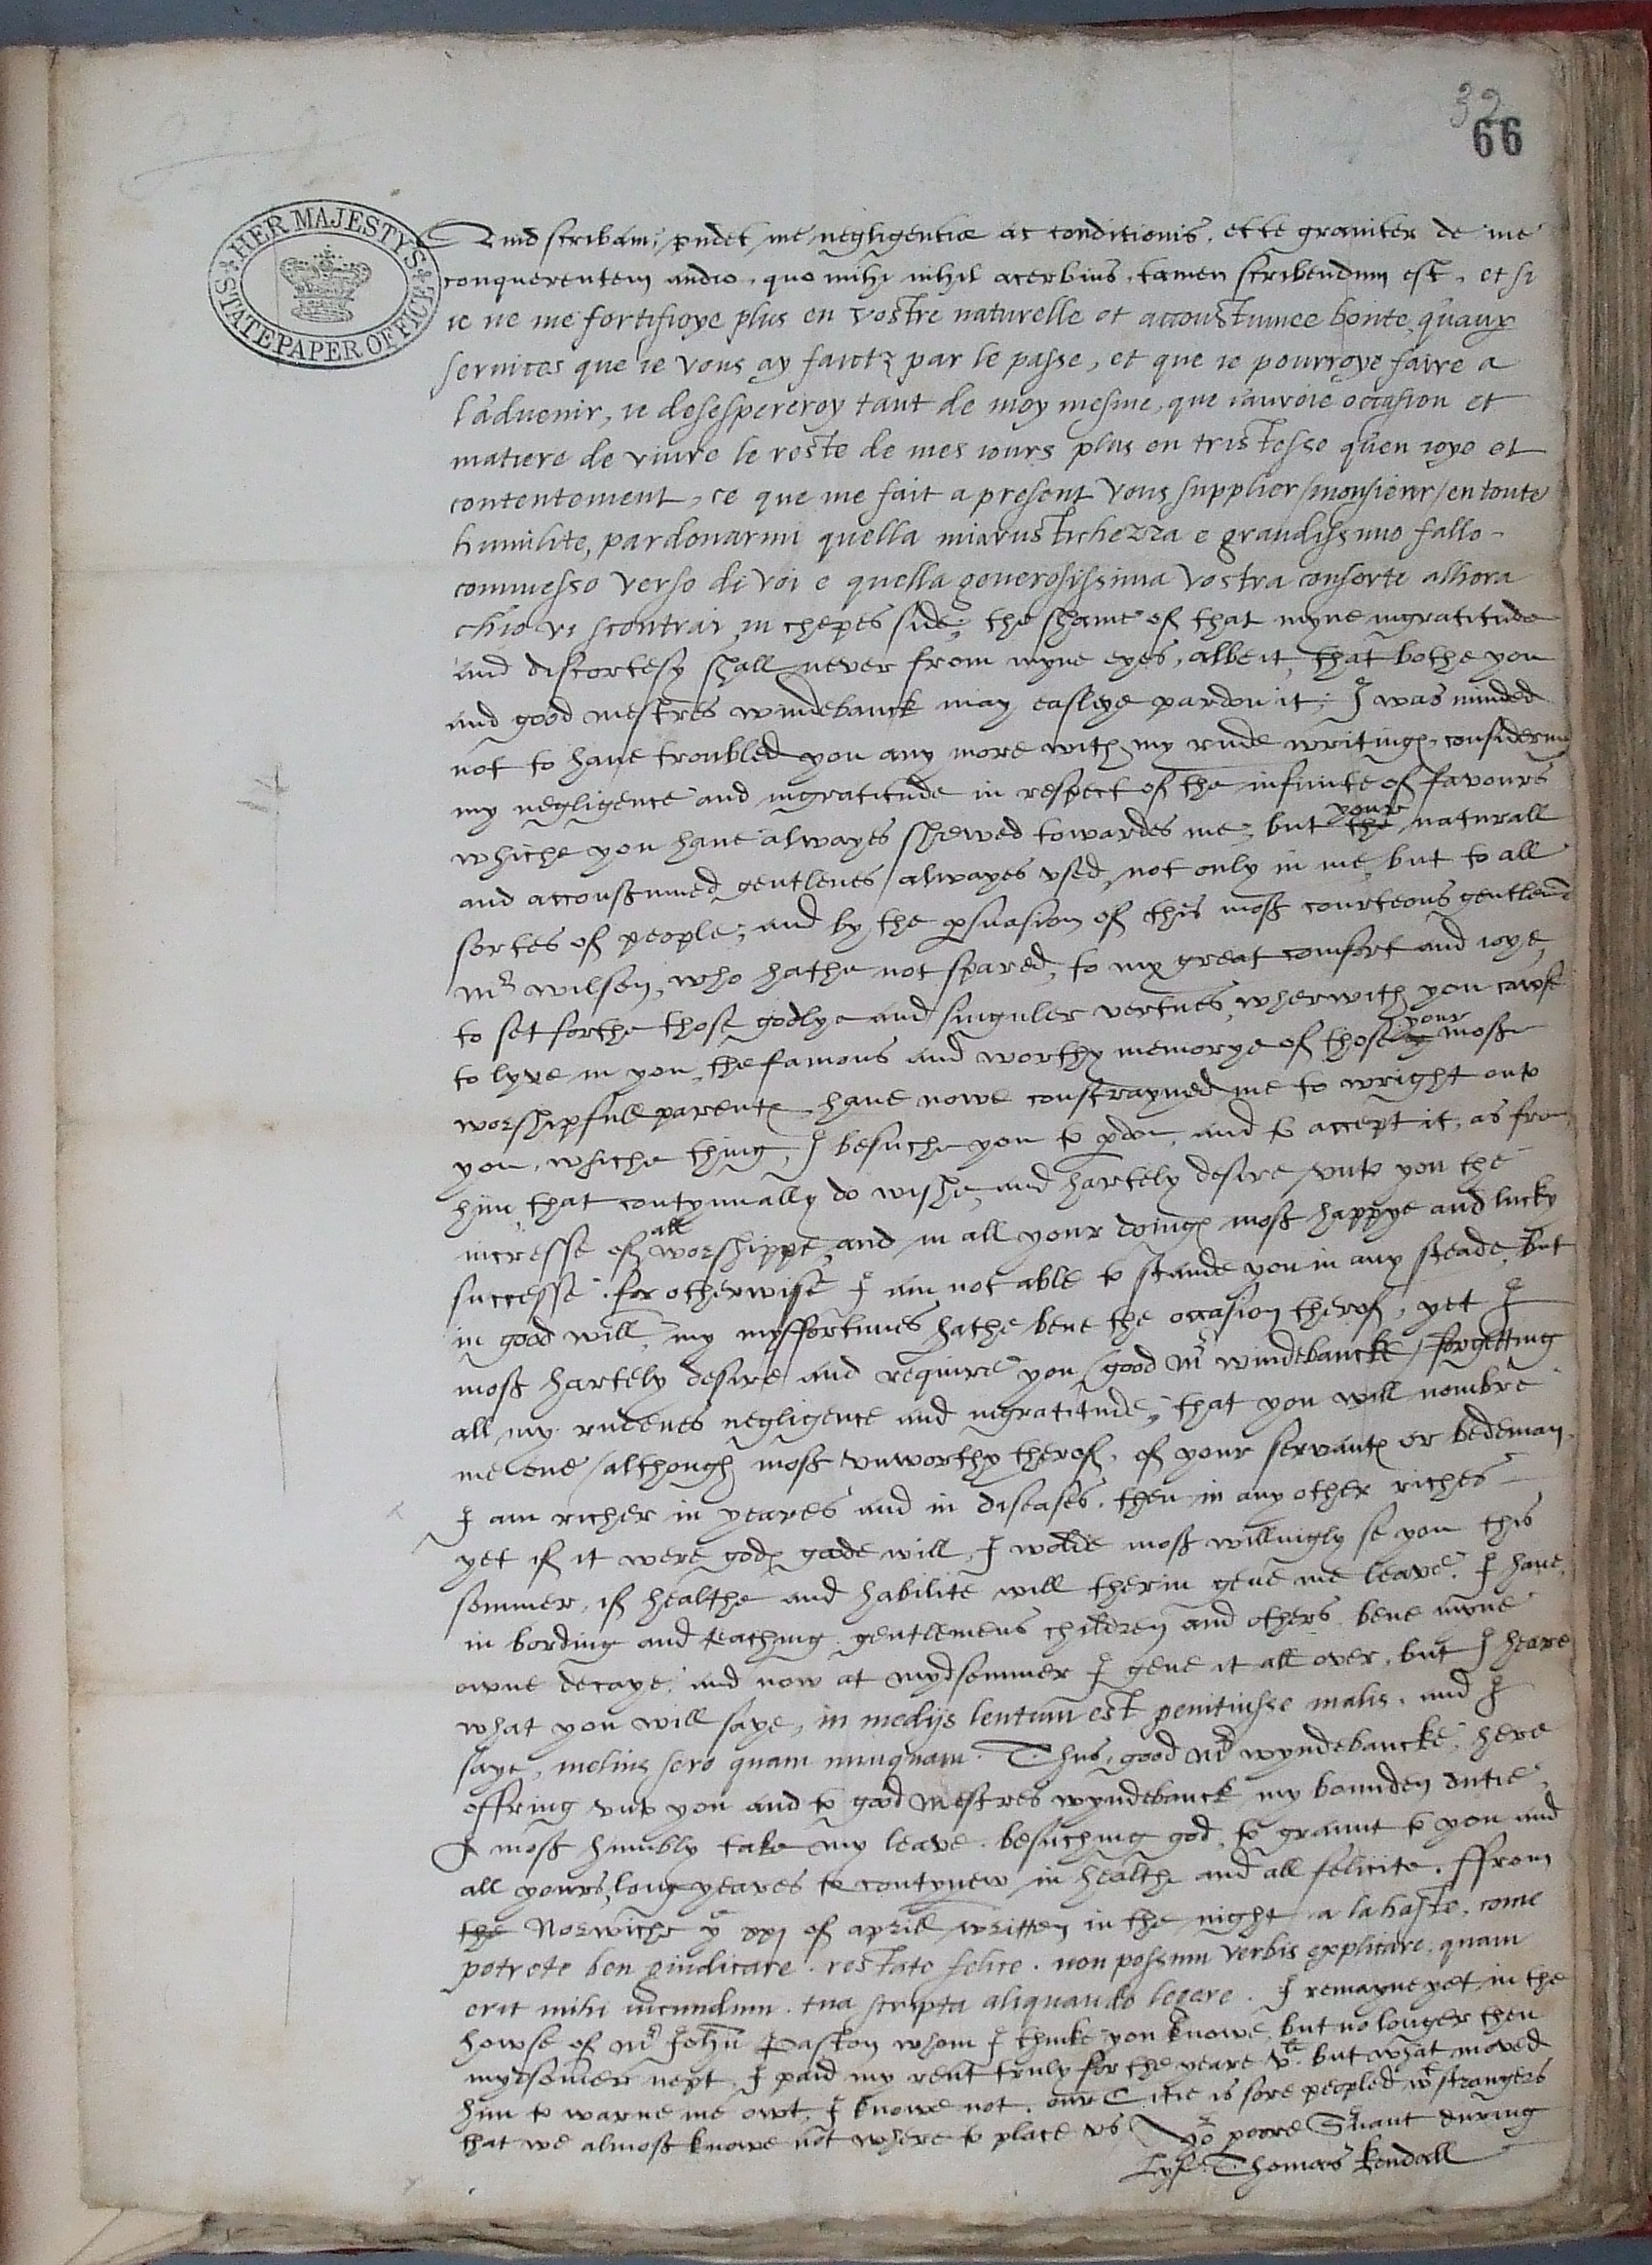 32
66
HER MAJESTY'S STATE PAPER OFFICE
Quid scribam, pudet me negligentiæ ac conditionis, et te graviter de me
conquerentem audio, quo mihi nihil acerbius, tamen scribendum est, et si
ie ne me fortifioye plus en vostre naturelle et accoustumee bonte qu'aux
services que ie vous ay faictz par le passe, et que ie pourroye faire a
l'advenir, ie desespereroy tant de moy mesme, que i'auroie occasion et
matiere de vivre le reste de mes iours plus en tristesse qu'en ioye et
contentement, ce que me fait a present vous supplier / monsieur / en toute
humilite, pardonarmi quella mia rustichezza e grandissimo fallo
commesso verso di voi e quella generosissima vostra consorte alhora
ch'io vi scontrai in chepes side; the shame of that myne ingratitude
and discortesy shall never from myne eyes, albeit, that bothe you
and good mestres windebanck may easlye pardon it; I was minded
not to have troubled you any more with my rude writinges, considering
my negligence and ingratitude in respect of the infinite of favours
whiche you have alwayes shewed towardes me; but the your naturall
and accoustumed gentlenes / alwayes used, not only in me, but to all
sortes of people; and by the persuasion of this most courteous gentlemā
Mr wilson, who hathe not spared, to my great comfort and ioye,
to set forthe those godlye and singuler vertues, wherwith you cawse
to lyve in you, the famous and worthy memorye of those your most
worshipfull parentes have nowe constrayned me to wright onto
you, whiche thing, I besuche you to pdon, and to accept it, as from
him, that contynually do wishe, and hartely desire unto you the
incresse of all worshippe, and in all your doinges most happye and lucky
successe. for otherwise I am not able to stande you in any steade, but
in good will, my myssfortunes hathe bene the occasion therof, yet I
most hartely desire and require you (good Mr windebancke / forgetting
all my rudenes negligence and ingratitude, that you will nombre
me one / although most unworthy therof, of your servantes or bedeman.
I am richer in yeares and in diseases, then in any other riches
yet if it were godes goode will, I wolde most willingly se you this
sommer, if healthe and habilite will therin geve me leave. I have
in bording and teaching gentlemens children and others bene myne
owne decaye, and now at mydsommer I geve it all over, but I heare
what you will saye, in medijs lentum est penituisse malis, and I
saye, melius sero quam nunquam. Thus, good Mr wyndebancke, here
offring unto you and to good Mestres wyndebanck my bounden dutie
I most humbly take my leave. besuching god, to graunt to you and
all yours, longe yeares to contynew in healthe and all felicite. ffrom
the Norwiche ye xxj of aprill written in the night a la haste, come
potrete ben giudicare. restate felice. non possum verbis explicare, quam
erit mihi iucundum tua scripta aliquando legere. I remayne yet in the
howse of Mr John Paston whom I thinke you knowe, but no longer then
mydsomer next. I paid my rent truly for the yeare vli. but what moved
him to warne me owt, I knowe not. our Citie is sore peopled wt strangers
that we almost knowe not where to place us / Yor poore Svant during
Lyf. Thomas Kendall